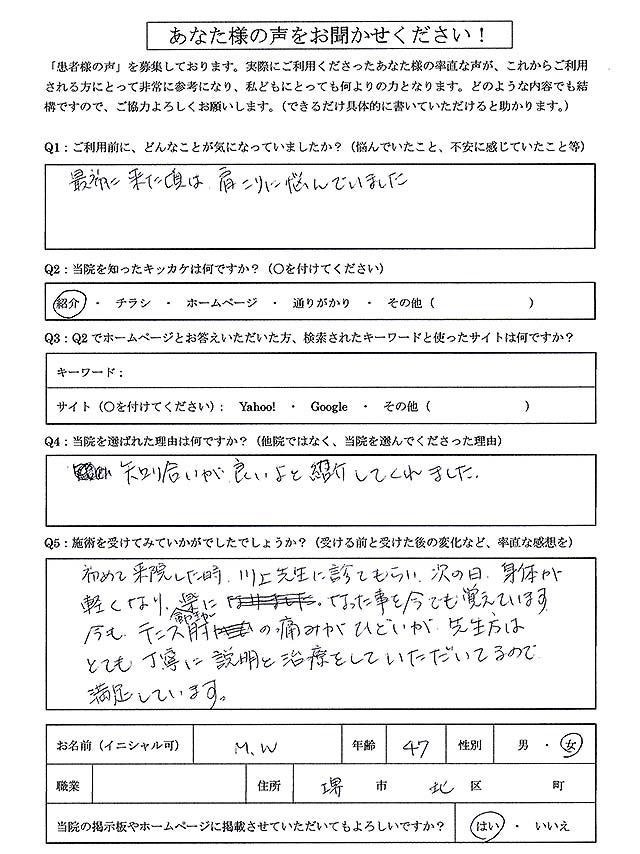 あなた様の声をお聞かせください！
「患者様の声」を募集しております。実際にご利用くださったあなた様の率直な声が、これからご利用
される方にとって非常に参考になり、私どもにとっても何よりの力となります。どのような内容でも結
構ですので、ご協力よろしくお願いします。（できるだけ具体的に書いていただけると助かります。）
Q1：ご利用前に、どんなことが気になっていましたか？（悩んでいたこと、不安に感じていたこと等）
最初に来た頃は、肩こりに悩んでいました
Q2：当院を知ったキッカケは何ですか？（〇を付けてください）
紹介 ・ チラシ ・ ホームページ ・ 通りがかり ・ その他（ ）
Q3：Q2でホームページとお答えいただいた方、検索されたキーワードと使ったサイトは何ですか？
キーワード：
サイト（〇を付けてください）： Yahoo! ・ Google ・ その他（ ）
Q4：当院を選ばれた理由は何ですか？（他院ではなく、当院を選んでくださった理由）
知り合いが良いよと紹介してくれました。
Q5：施術を受けてみていかがでしたでしょうか？（受ける前と受けた後の変化など、率直な感想を）
初めて来院した時、川上先生に診てもらい、次の日、身体が
軽くなり、楽に なった事を今でも覚えています
今も、テニス肘 の痛みがひどいが、先生方は
とても丁寧に説明と治療をしていただいてるので、
満足しています。
お名前（イニシャル可） M.W 年齢 47 性別 男 ・ 女
職業 住所 堺 市 北 区 町
当院の掲示板やホームページに掲載させていただいてもよろしいですか？ はい ・ いいえ